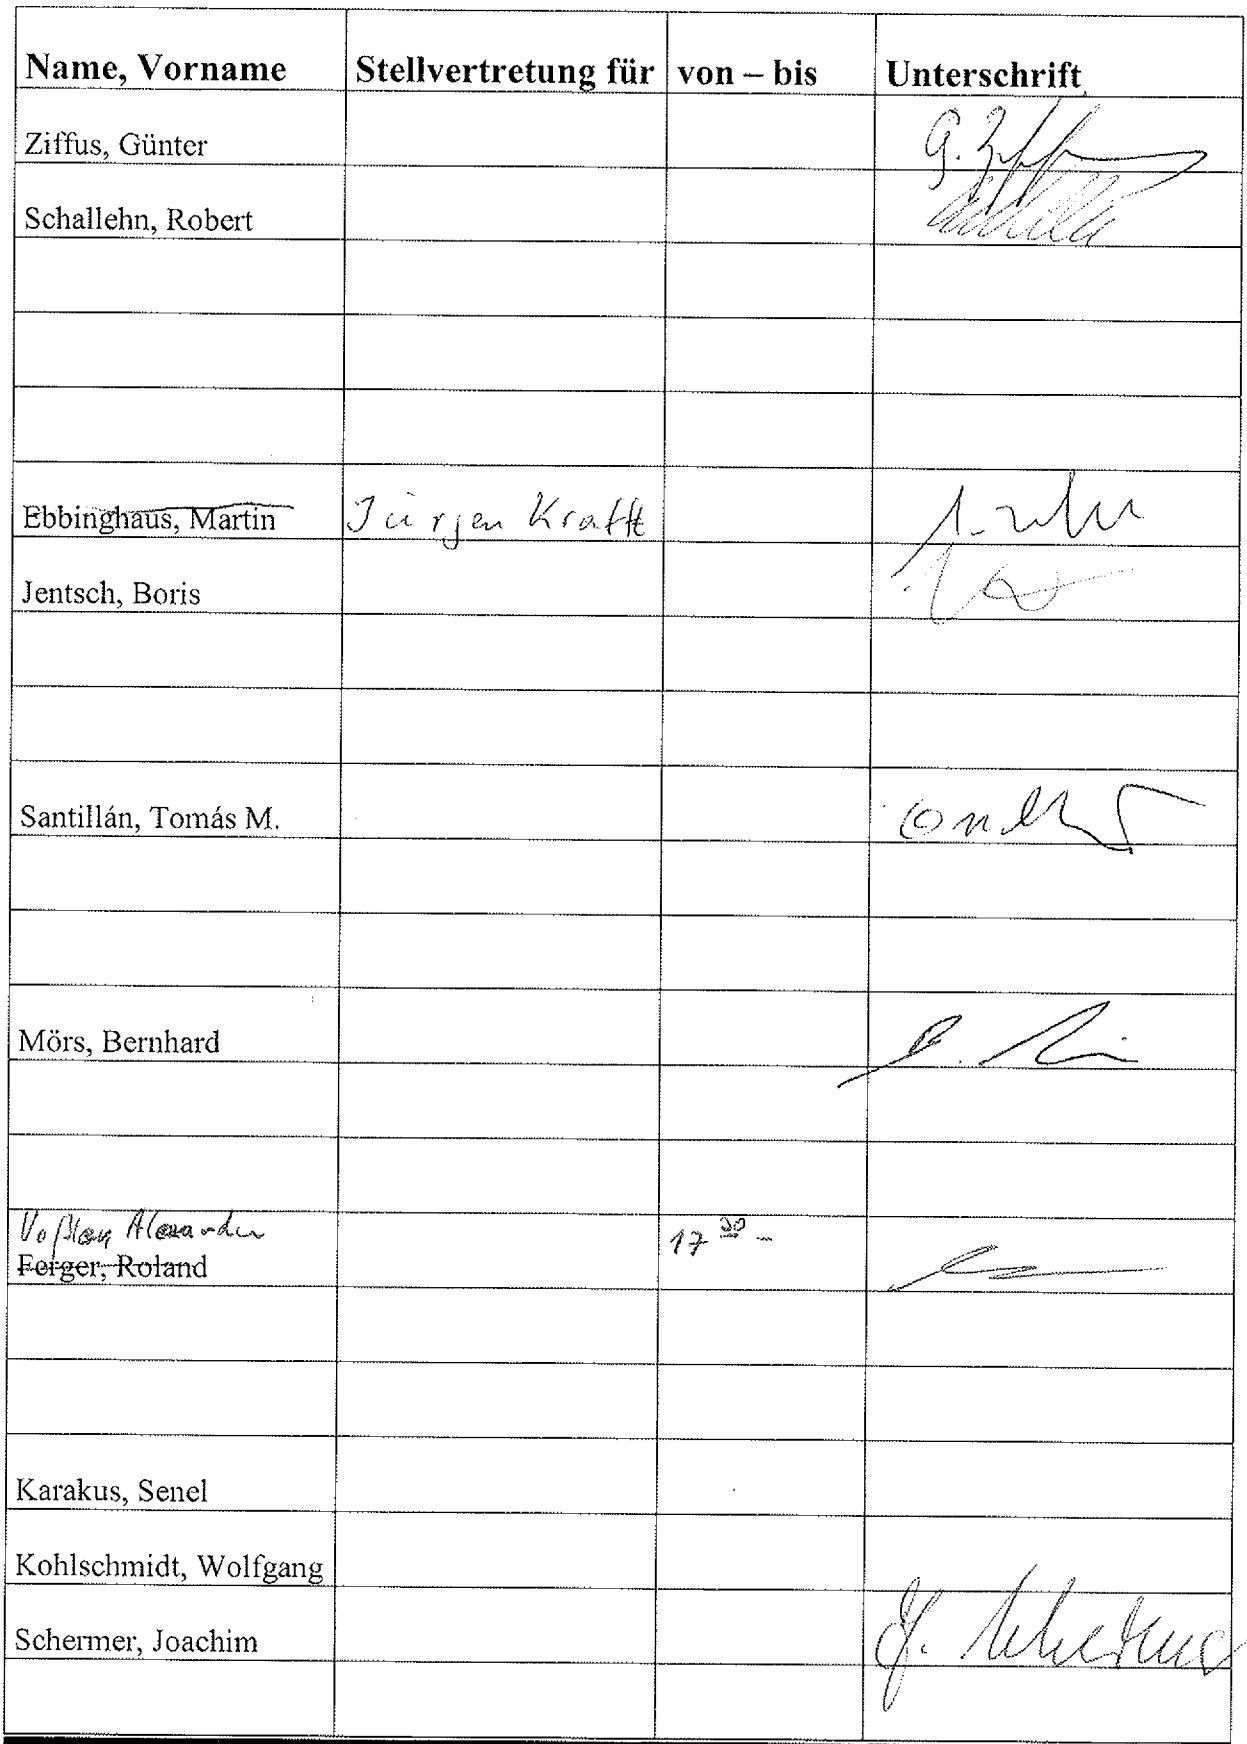 Name, Vorname Stellvertretung für von – bis Unterschrift
Ziffus, Günter
Schallehn, Robert
Ebbinghaus, Martin Jürgen Krafft
Jentsch, Boris
Santillán, Tomás M.
Mörs, Bernhard
Alexander 17 30 –
Ferger, Roland
Karakus, Senel
Kohlschmidt, Wolfgang
Schermer, Joachim